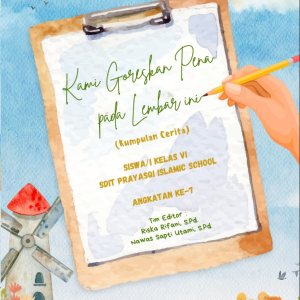 Kami Goreskan Pena
pada Lembar ini
(Kumpulan Cerita)
SISWA/I KELAS VI
SDIT PRAYASQI ISLAMIC SCHOOL
ANGKATAN KE-7
Tim Editor
Riska Rifani, S.Pd.
Nawas Sapti Utami, S.Pd.